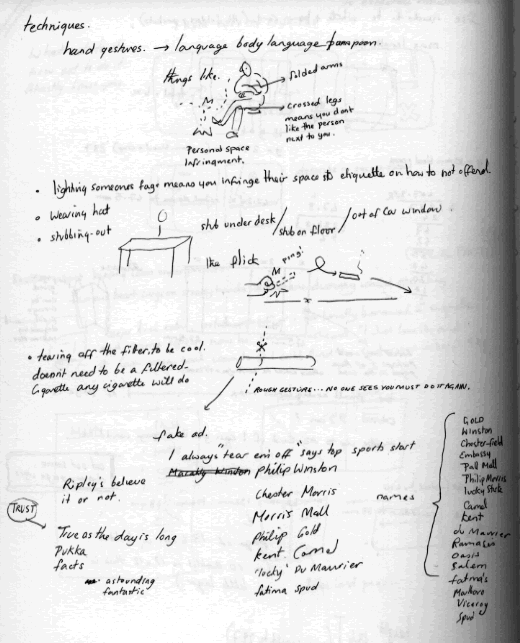 techniques.
hand gestures. → language body language
things like.
folded arms
crossed legs
means you dont
like the person
next to you.
Personal space
Infringment.
• lighting someones fags means you infringe their space so etiquette on how to not offend
• Wearing hat
• stubbing-out
stub under desk / stub on floor / out of car window.
the flick
ping!
x
• tearing off the filter, to be cool.
doesn't need to be a filtered-
cigarette any cigarette will do
ROUGH GESTURE... NO ONE SEES YOU MUST DO IT AGAIN.
fake ad.
I always "tear em off" says top sports start
philip Winston
Ripley's believe
it or not.
Chester Morris
names
Morris Mall
TRUST
True as the day is long
Philip Gold
Pukka
kent Camel
facts
'lucky' Du Maurier
astounding
fantastic
fatima spud
GOLD
Winston
Chesterfield
Embassy
Pall Mall
Philip Morris
lucky Strik
Camel
Kent
du Maurier
Rameses
Oasis
Salem
fatima's
Marlboro
Viceroy
Spud